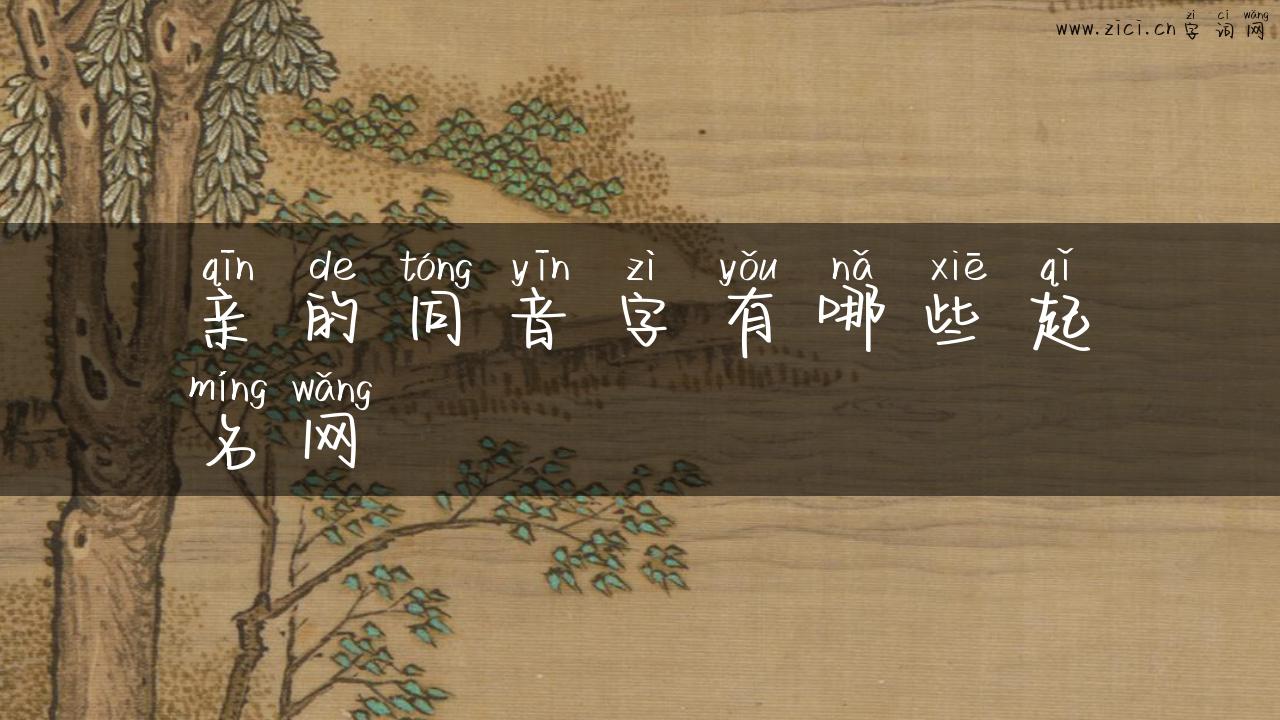 zì cí wǎng
www.zici.cn 字词网
qīn de tóng yīn zì yǒu nǎ xiē qǐ
亲的同音字有哪些起
míng wǎng
名网